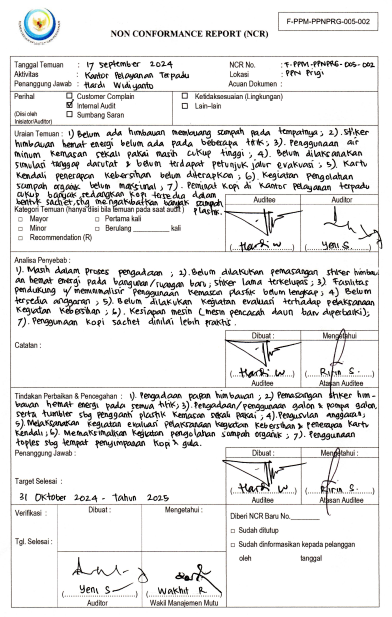 F-PPM-PPNPRG-005-002
NON CONFORMANCE REPORT (NCR)
Tanggal Temuan : 17 September 2024
NCR No. : F-PPM-PPNPRG-005-002
Aktivitas : Kantor Pelayanan Terpadu
Lokasi : PPN Prigi
Penanggung Jawab : Hardi Widiyanto
Acuan Dokumen :
Perihal
(Diisi oleh Inisiator/Auditor)
☐ Customer Complain
☑ Internal Audit
☐ Sumbang Saran
☐ Ketidaksesuaian (Lingkungan)
☐ Lain-lain
Uraian Temuan : 1) Belum ada himbauan membuang sampah pada tempatnya; 2). Stiker
himbauan hemat energi belum ada pada beberapa titik; 3). Penggunaan air
minum kemasan sekali pakai masih cukup tinggi; 4). Belum dilaksanakan
simulasi tanggap darurat & belum terdapat petunjuk jalur evakuasi; 5). Kartu
kendali penerapan kebersihan belum diterapkan; 6). Kegiatan pengolahan
sampah organik belum maksimal; 7). Peminat Kopi di Kantor Pelayanan terpadu
cukup banyak, sedangkan kopi tersedia dalam
bentuk sachet, shg mengakibatkan banyak sampah
plastik.
Kategori Temuan (hanya diisi bila temuan pada saat audit)
☐ Mayor ☐ Pertama kali
☐ Minor ☐ Berulang ______ kali
☐ Recommendation (R)
Auditee
(Hardi W)
Auditor
(Yeni S.)
Analisa Penyebab :
1). Masih dalam proses pengadaan; 2). Belum dilakukan pemasangan stiker himbau
an hemat energi pada bangunan/ruangan baru, stiker lama terkelupas; 3). Fasilitas
pendukung u/ meminimalisir penggunaan kemasan plastik belum lengkap; 4). Belum
tersedia anggaran; 5). Belum dilakukan kegiatan evaluasi terhadap pelaksanaan
Kegiatan Kebersihan; 6). Kesiapan mesin (mesin pencacah daun baru diperbaiki);
7). Penggunaan kopi sachet dinilai lebih praktis.
Catatan :
Dibuat :
(Hardi W)
Auditee
Mengetahui
(Ririn S.)
Atasan Auditee
Tindakan Perbaikan & Pencegahan : 1). Pengadaan papan himbauan; 2) Pemasangan stiker him-
bauan hemat energi pada semua titik; 3). Pengadaan/penggunaan galon & pompa galon,
serta tumbler sbg pengganti plastik kemasan sekali pakai; 4). Pengusulan anggaran;
5). Melaksanakan kegiatan evaluasi pelaksanaan kegiatan kebersihan & penerapan kartu
kendali; 6). Memaksimalkan kegiatan pengolahan sampah organik; 7). Penggunaan
toples sbg tempat penyimpanan kopi & gula.
Penanggung Jawab :
Target Selesai :
31 Oktober 2024 - tahun 2025
Dibuat :
(Hardi W)
Auditee
Mengetahui :
(Ririn S.)
Atasan Auditee
Verifikasi :
Tgl. Selesai :
Dibuat :
(Yeni S)
Auditor
Mengetahui :
(Wakhit R)
Wakil Manajemen Mutu
Diberi NCR Baru No.______
☐ Sudah ditutup
☐ Sudah dinformasikan kepada pelanggan
oleh tanggal